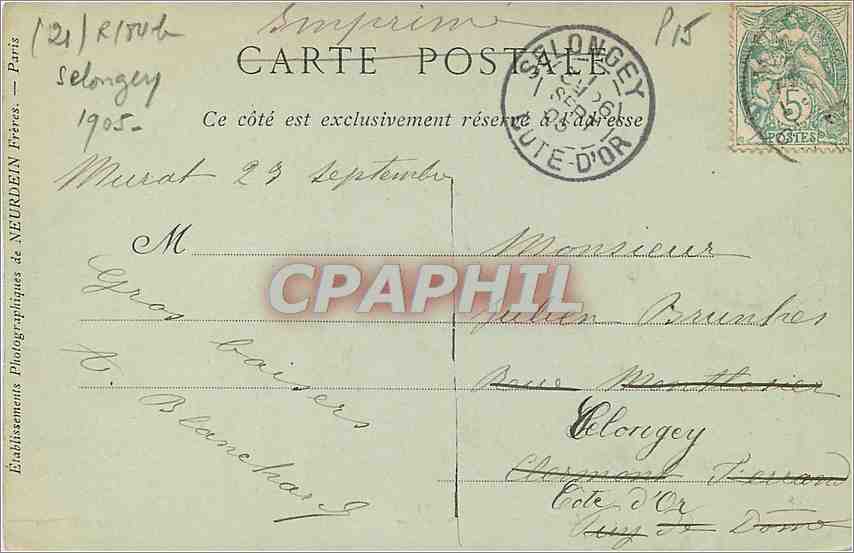 Imprimé
(21) R104b
Selongey
1905-
P15
CARTE POSTALE
Ce côté est exclusivement réservé à l'adresse
SELONGEY
26
SEPT
05
COTE-D'OR
5c
POSTES
Murat 23 septembre
M
Gros baisers
A. Blanchard
CPAPHIL
Monsieur
Julien Brunhes
Selongey
Clermont Ferrand
Côte d'Or
Puy de Dôme
Établissements Photographiques de NEURDEIN Frères. — Paris